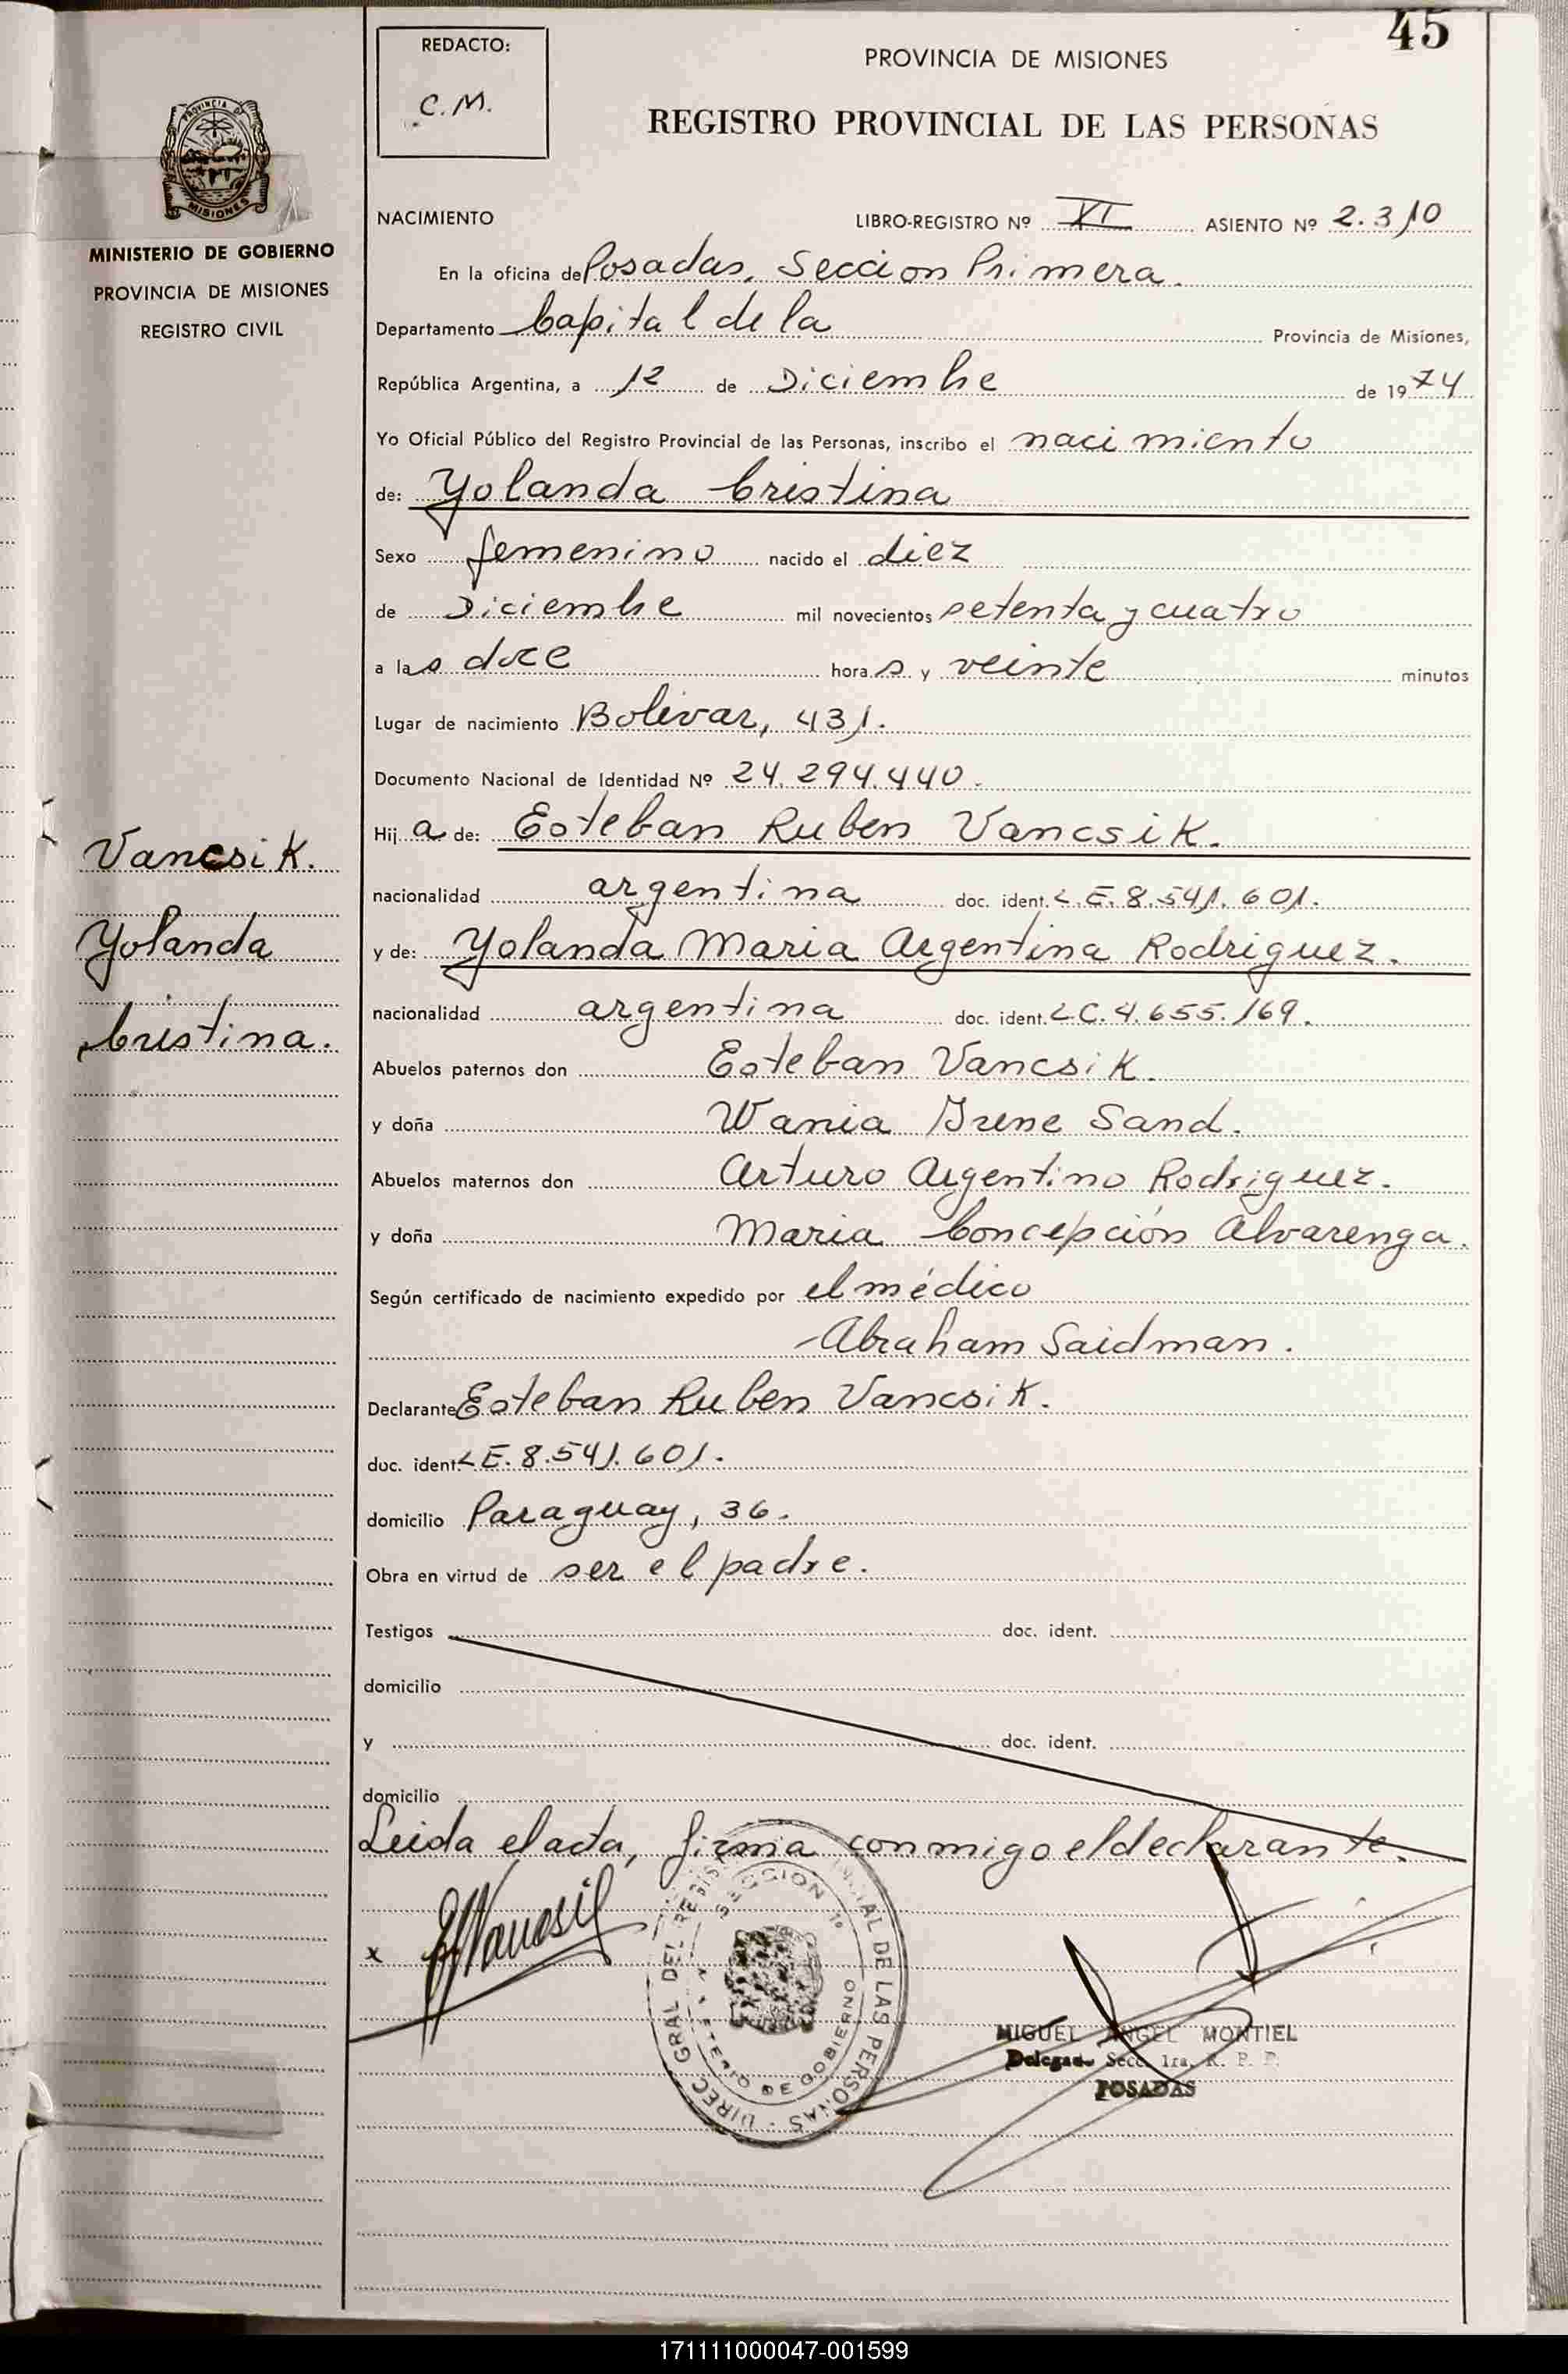 45
REDACTO:
C.M.
PROVINCIA DE MISIONES
REGISTRO PROVINCIAL DE LAS PERSONAS
PROVINCIA DE
MISIONES
MINISTERIO DE GOBIERNO
PROVINCIA DE MISIONES
REGISTRO CIVIL
NACIMIENTO LIBRO-REGISTRO Nº VI ASIENTO Nº 2.310
En la oficina de Posadas, Seccion Primera.
Departamento Capital de la Provincia de Misiones,
República Argentina, a 12 de Diciembre de 1974
Yo Oficial Público del Registro Provincial de las Personas, inscribo el nacimiento
de: Yolanda Cristina
Sexo femenino nacido el diez
de Diciembre mil novecientos setenta y cuatro
a las doce horas y veinte minutos
Lugar de nacimiento Bolivar, 431.
Documento Nacional de Identidad Nº 24.294.440.
Hija de: Esteban Ruben Vancsik.
Vancsik.
nacionalidad argentina doc. ident. L.E. 8.541.601.
Yolanda
y de: Yolanda Maria Argentina Rodriguez.
nacionalidad argentina doc. ident. L.C. 4.655.169.
Cristina.
Abuelos paternos don Esteban Vancsik.
y doña Wania Irene Sand.
Abuelos maternos don Arturo Argentino Rodriguez.
y doña Maria Concepción Alvarenga.
Según certificado de nacimiento expedido por el médico
Abraham Saidman.
Declarante Esteban Ruben Vancsik.
doc. ident. L E. 8.541.601.
domicilio Paraguay, 36.
Obra en virtud de ser el padre.
Testigos doc. ident.
domicilio
y doc. ident.
domicilio
Leida el acta, firma conmigo el declarante.
x EVancsik
DIREC. GRAL DEL REGIS IAL DE LAS PERSONAS
SECCION 1º
DE GOBIERNO
MIGUEL ANGEL MONTIEL
Delegado Secc. 1ra. R. P. P.
POSADAS
171111000047-001599